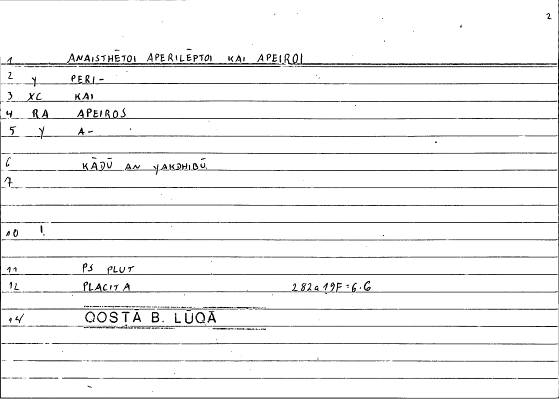 2
1 ANAISTHĒTOI APERILĒPTOI KAI APEIROI
2 Y PERI-
3 XC KAI
4 RA APEIROS
5 Y A-
6 KĀDŪ AN YAKDHIBŪ
7
10 1.
11 PS PLUT
12 PLACITA 282a19F=6.6
14 QOSTĀ B. LŪQĀ